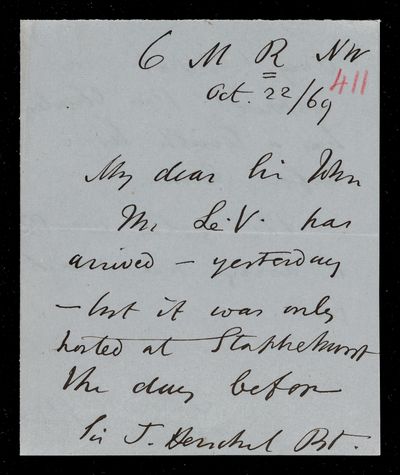 6 M R NW
Oct. 22/69
411
My dear Sir John
The Le.V. has
arrived – yesterday
– but it was only
posted at Staplehurst
the day before
Sir J. Herschel Bt.